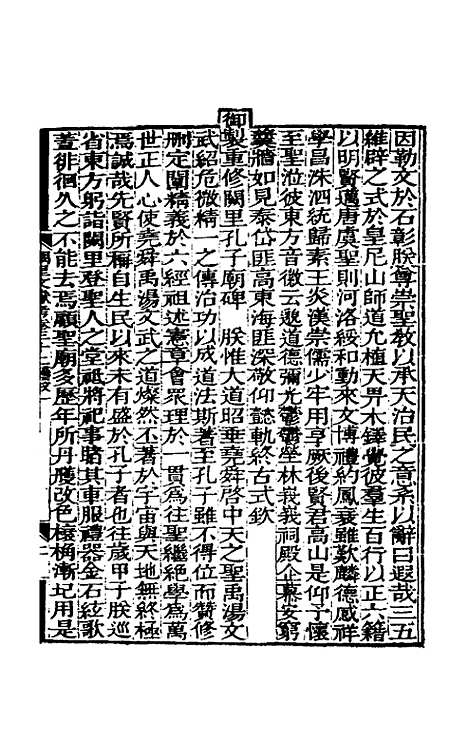 因勒文於石彰朕尊崇聖教以承天治民之意系以辭曰遐哉三五
維辟之式於皇尼山師道允植天畀木鐸覺彼羣生百行以正六籍
以明賢邁唐虞聖則河洛綏和動來文博禮約鳳衰雖歎麟德感祥
學昌洙泗統歸素王炎漢崇儒少牢用享厥後賢君高山是仰予懷
至聖涖彼東方音徽云邈道德彌光鬱鬱塋林峩峩祠殿企慕安窮
羹牆如見泰岱匪高東海匪深敬仰懿軌終古式欽
御製重修闕里孔子廟碑 朕惟大道昭垂堯舜啓中天之聖禹湯文
武紹危微精 之傳治功以成道法斯著至孔子雖不得位而贊修
刪定闡精義於六經祖述憲章會衆理於一貫為往聖繼絕學為萬
世正人心使堯舜禹湯文武之道燦然丕著於宇宙與天地無終極
焉誠哉先賢所稱自生民以來未有盛於孔子者也往歲甲子朕巡
省東方躬詣闕里登聖人之堂祗將祀事睹其車服禮器金石絃歌
蓋徘徊久之不能去焉顧聖廟多歷年所丹雘改色榱桷漸圮用是